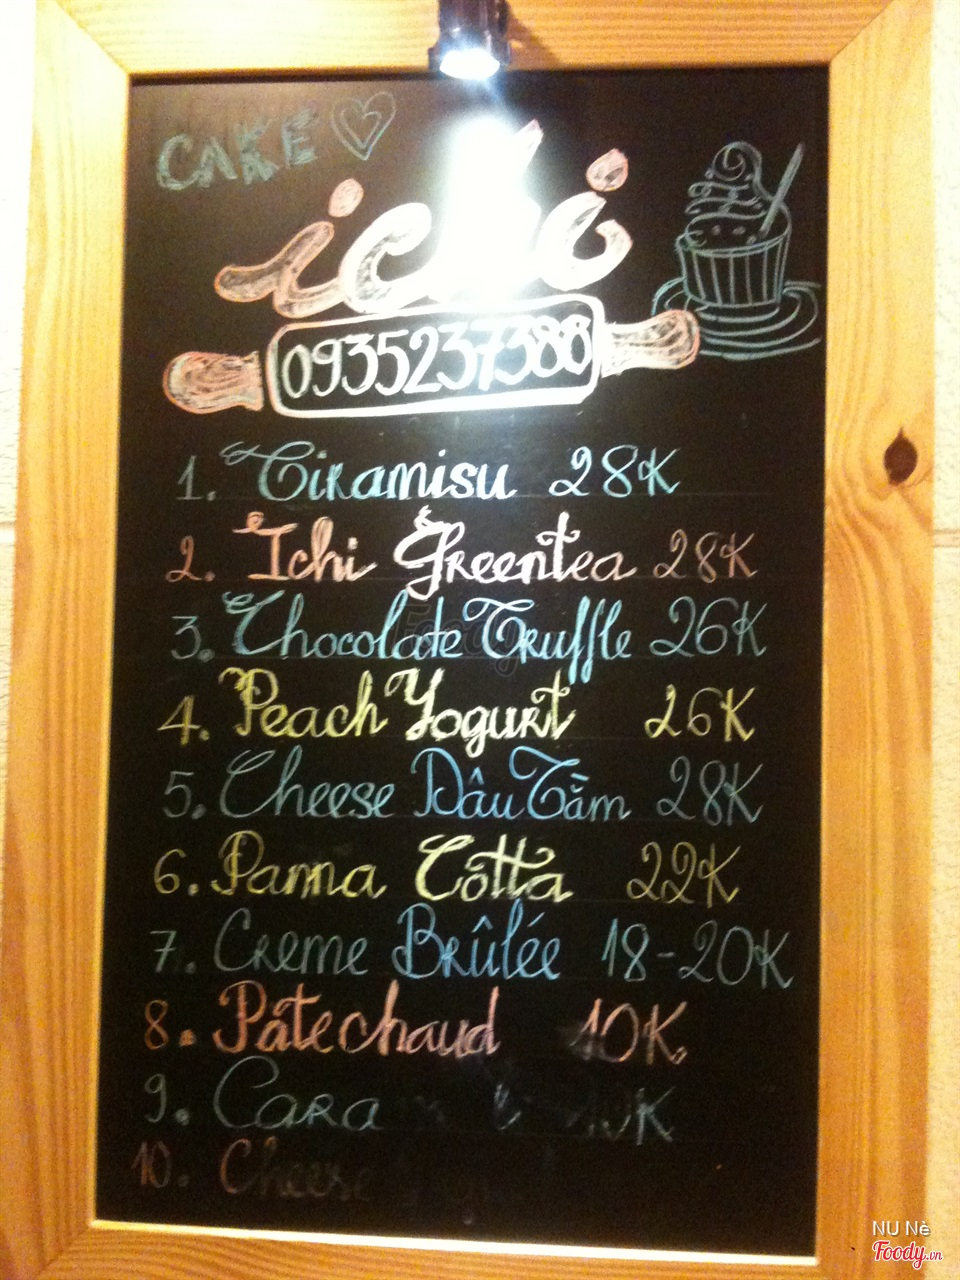 CAKE
ichi
0935237388
1. Tiramisu 28K
2. Ichi Greentea 28K
3. Chocolate Truffle 26K
4. Peach Yogurt 26K
5. Cheese Dâu Tằm 28K
6. Panna Cotta 22K
7. Creme Brûlée 18-20K
8. Pâtechaud 10K
9. Cara
10. Cheese
NU Nè
Foody.vn